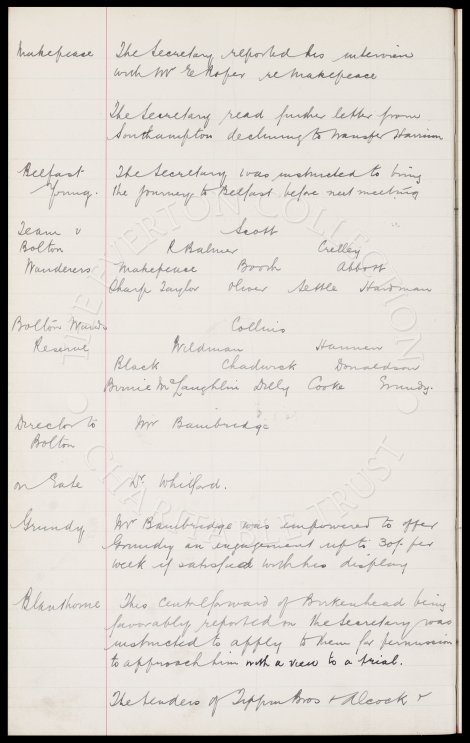 Makepeace The Secretary reported his interview
with Mr E Roper re Makepeace
The Secretary read further letter from
Southampton declining to transfer Harrison
Belfast The Secretary was instructed to bring
Young. the journey to Belfast before next meeting
Team v Scott
Bolton R Balmer Crelley
Wanderers Makepeace Booth Abbott
Sharp Taylor Oliver Settle Hardman
Bolton Wands Collins
Reserve Wildman Hannan
Black Chadwick Donaldson
Birnie McLaughlin Dilly Cooke Grundy.
Director to Mr Bainbridge
Bolton
on Gate Dr Whitford.
Grundy Mr Bainbridge was empowered to offer
Grundy an engagement up to 30/- per
week if satisfied with his display
Blanthorne This centreforward of Birkenhead being
favorably reported on the Secretary was
instructed to apply to them for permission
to approach him with a view to a trial.
The tenders of Tippin Bros & Alcock &
THE EVERTON COLLECTION
CHARITABLE TRUST